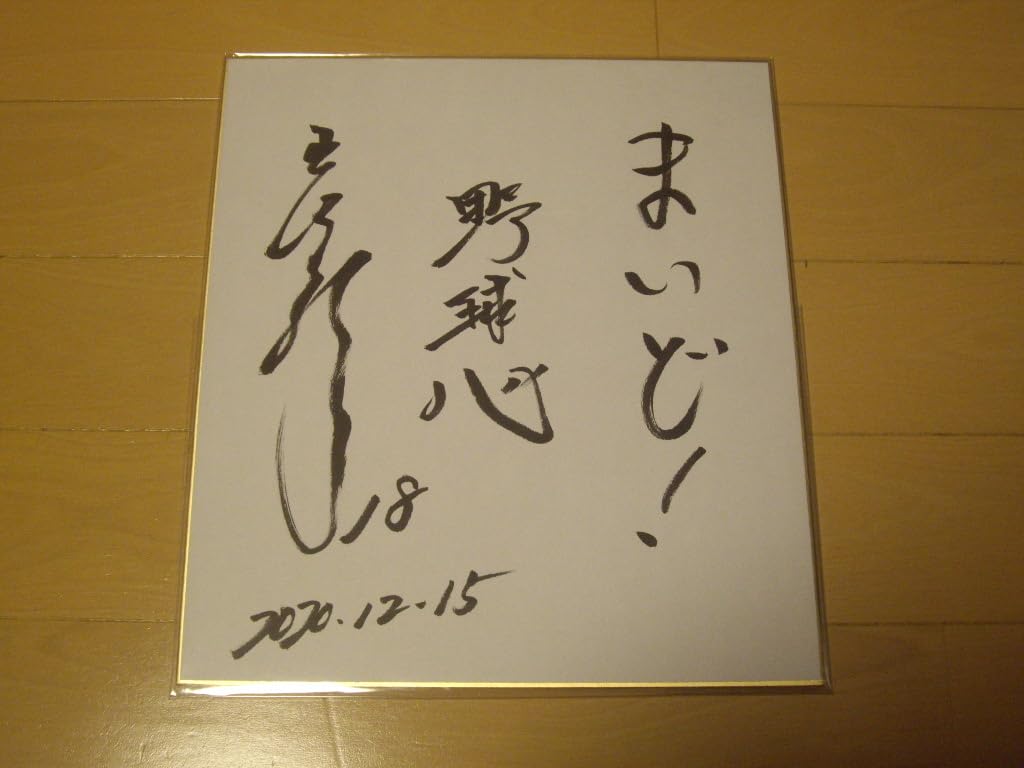 まいど！
野球心
18
2020.12.15